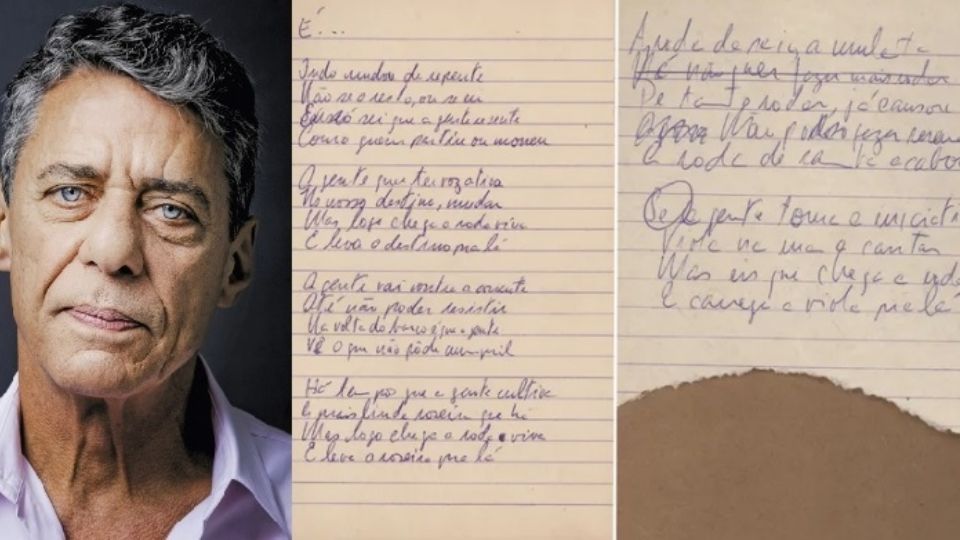 É...
Tudo mudou de repente
Não se o resto, ou se eu
Eu só sei que a gente sente
Como quem partiu ou morreu
A gente quer ter voz ativa
No nosso destino, mandar
Mas logo chega a roda viva
E leva o destino pra lá
A gente vai contra a corrente
Até não poder resistir
Na volta do barco é que a gente
Vê o que não pôde cumprir
Há tempo que a gente cultiva
A mais linda roseira que há
Mas logo chega a roda viva
E leva a roseira pra lá
A roda de saia mulata
não quer fazer mais rodar
De tanto rodar, já cansou
Não posso fazer seren
A roda de samba acabo
Se a gente toma a iniciati
Viola na mão a cantar
Mas eis que chega a roda
E carrega a viola pra lá